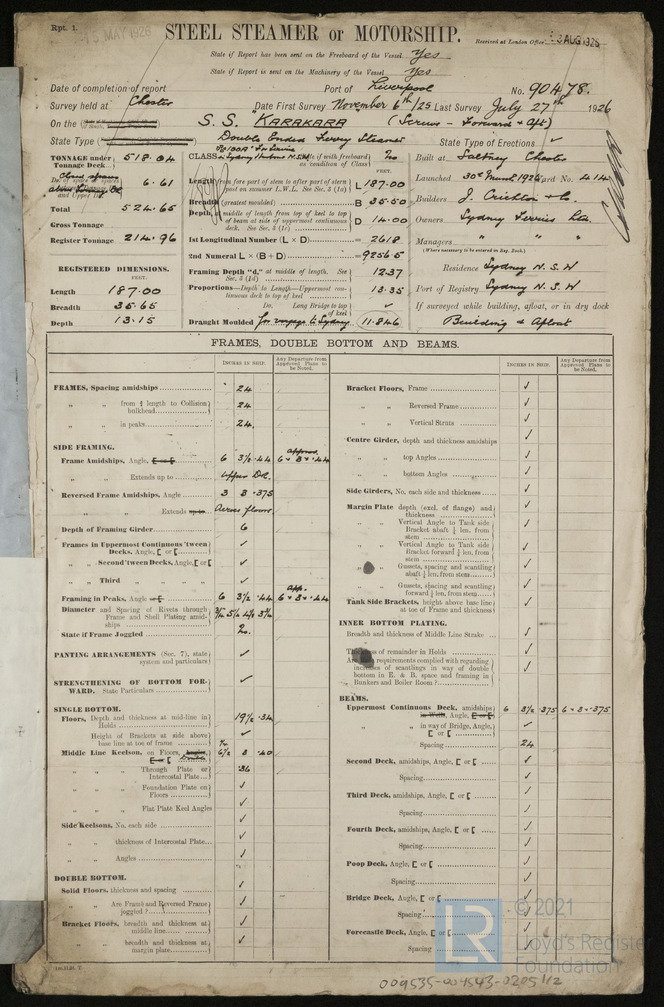 Rpt. 1.
MAY 1926
STEEL STEAMER or MOTORSHIP.
Received at London Office AUG 1926
State if Report has been sent on the Freeboard of the Vessel Yes
State if Report is sent on the Machinery of the Vessel Yes
Date of completion of report Port of Liverpool No. 90478.
Survey held at Chester Date First Survey November 6th/25 Last Survey July 27th 1926
On the S.S. "KARAKARA" (Screw - Forward & Aft)
State Type Double Ended Ferry Steamer State Type of Erections ✓
TONNAGE under Tonnage Deck 518.04
Closed spaces 6.61
Total 524.65
Gross Tonnage
Register Tonnage 214.96
REGISTERED DIMENSIONS.
FEET.
Length 187.00
Breadth 35.65
Depth 13.15
CLASS "For Service in Sydney Harbour N.S.W." State if with freeboard as condition of Class No
FEET.
Length from fore part of stem to after part of stern post on summer L.W.L. See Sec. 3 (1a) L 187.00
Breadth (greatest moulded) B 35.50
Depth, at middle of length from top of keel to top of beam at side of uppermost continuous deck. See Sec. 3 (1c) D 14.00
1st Longitudinal Number (L × D) = 2618
2nd Numeral L × (B + D) = 9256.5
Framing Depth "d," at middle of length. See Sec. 3 (1d) 12.37
Proportions—Depth to Length—Uppermost continuous deck to top of keel 13.35
Do. Long Bridge to top of keel ✓
Draught Moulded for voyage to Sydney 11.846
Built at Saltney Chester
Launched 30th March 1926 Yard No. 414
Builders J. Crichton & Co.
Owners Sydney Ferries Ltd.
Managers " " "
(Where necessary to be entered in Reg. Book.)
Residence Sydney N.S.W
Port of Registry Sydney N.S.W
If surveyed while building, afloat, or in dry dock
Building & Afloat
FRAMES, DOUBLE BOTTOM AND BEAMS.
INCHES IN SHIP. Any Departure from Approved Plans to be Noted.
FRAMES, Spacing amidships 24
" " from ⅕ length to Collision bulkhead 24
" " in peaks 24.
SIDE FRAMING.
Frame Amidships, Angle, 6 3½ .44 approved 6 . 3 . .44
" " Extends up to Upper Dk.
Reversed Frame Amidships, Angle 3 3 .375
" " Extends Across floors
Depth of Framing Girder 6
Frames in Uppermost Continuous 'tween Decks, Angle, [ or [ ✓
" " Second 'tween Decks, Angle, [ or [ ✓
" " Third " " ✓
Framing in Peaks, Angle 6 3½ .44 App. 6 . 3 . .44
Diameter and Spacing of Rivets through Frame and Shell Plating amidships
State if Frame Joggled No.
PANTING ARRANGEMENTS (Sec. 7), state system and particulars ✓
STRENGTHENING OF BOTTOM FORWARD. State Particulars ✓
SINGLE BOTTOM.
Floors, Depth and thickness at mid-line in Holds 19½ .34
Height of Brackets at side above base line at toe of frame ✓
Middle Line Keelson, on Floors, Angles, Double 6½ 3 .40
" " Through Plate or Intercostal Plate .36
" " Foundation Plate on Floors ✓
" " Flat Plate Keel Angles ✓
Side Keelsons, No. each side ✓
" " thickness of Intercostal Plate ✓
" " Angles ✓
DOUBLE BOTTOM.
Solid Floors, thickness and spacing ✓
" " Are Frame and Reversed Frame joggled? ✓
Bracket Floors, breadth and thickness at middle line ✓
" " breadth and thickness at margin plate ✓
INCHES IN SHIP. Any Departure from Approved Plans to be Noted.
Bracket Floors, Frame ✓
" " Reversed Frame ✓
" " Vertical Struts ✓
Centre Girder, depth and thickness amidships ✓
" " top Angles ✓
" " bottom Angles ✓
Side Girders, No. each side and thickness ✓
Margin Plate depth (excl. of flange) and thickness ✓
" " Vertical Angle to Tank side Bracket abaft ¼ len. from stem ✓
" " Vertical Angle to Tank side Bracket forward ¼ len. from stem ✓
" Gussets, spacing and scantling abaft ¼ len. from stem ✓
" Gussets, spacing and scantling forward ¼ len. from stem ✓
Tank Side Brackets, height above base line at toe of Frame and thickness ✓
INNER BOTTOM PLATING.
Breadth and thickness of Middle Line Strake ✓
of remainder in Holds ✓
requirements complied with regarding increases of scantlings in way of double bottom in E. & B. space and framing in Bunkers and Boiler Room? ✓
BEAMS.
Uppermost Continuous Deck, amidships in Wells, Angle, 6 3½ .375 6 . 3 . .375
" " in way of Bridge, Angle, [ or [ ✓
Spacing 24
Second Deck, amidships, Angle, [ or [ ✓
Spacing ✓
Third Deck, amidships, Angle, [ or [ ✓
Spacing ✓
Fourth Deck, amidships, Angle, [ or [ ✓
Spacing ✓
Poop Deck, Angle, [ or [ ✓
Spacing ✓
Bridge Deck, Angle, [ or [ ✓
Spacing ✓
Forecastle Deck, Angle, [ or [ ✓
Spacing ✓
LR
© 2021
Lloyd's Register
Foundation
009535-009543-0205 1/2